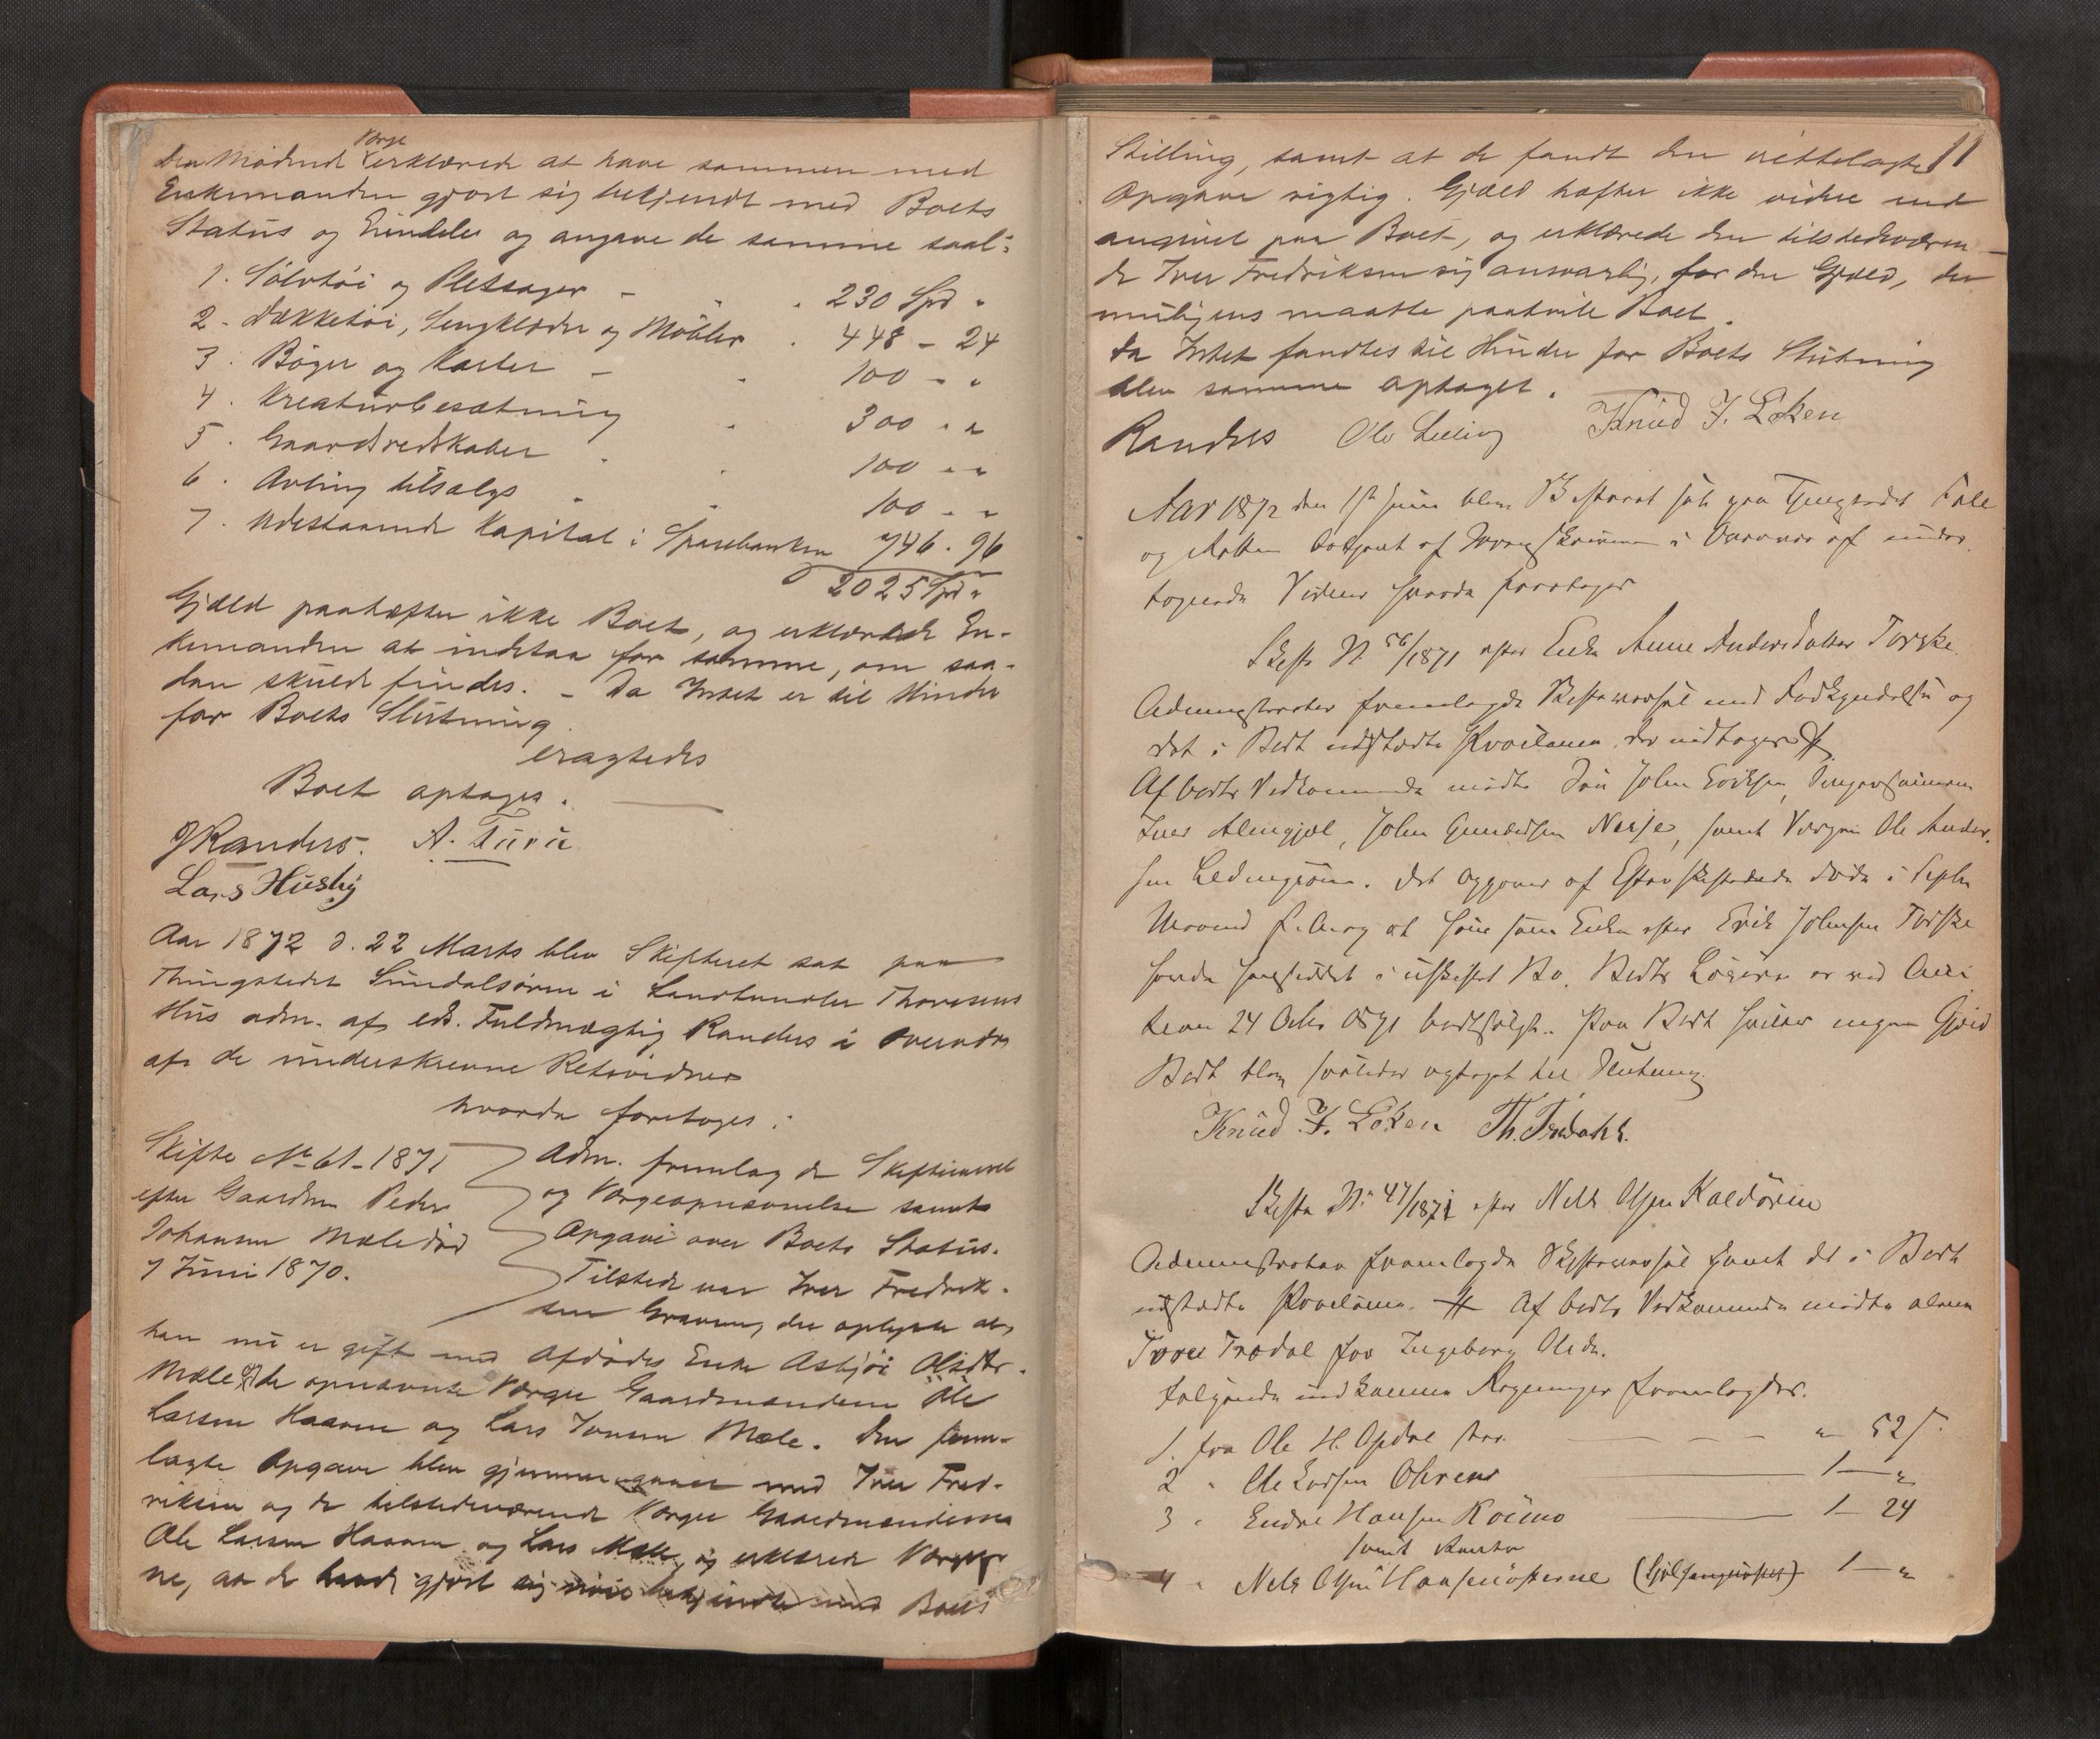 Værge
den Mødende erklærede at have sammen med
Enkemanden gjort sig bekjendt med Boets
Status og Eiendele og angave de samme saal:
1. Sølvtøi og Pletsager - " . 230 Spd "
2. Dækketøi, Sengklæder og Møbler . 448 - 24
3. Bøger og Karter - " 100 - "
4. Kreaturbesætning " 300 - "
5. Gaardsredskaber " " 100 - "
6. Avling tilsalgs " " 100 - "
7. Udestaaende Kapital i Sparebanken 746. 96
2025 Spd "
Gjæld paahæfter ikke Boet, og erklærede En-
kemanden at indstaa for samme, om saa-
dan skulde findes. - Da Intet er til Hinder
for Boets Slutning
eragtedes
Boet optages.
JRanders. A. Furu
Lars Husby
Aar 1872 d. 22 Marts blev Skifteret sat paa
Thingstedet Sundalsøren i Landhandler Thoresens
Hus adm. af edsv. Fuldmægtig Randers i Overvær
af de underskrevne Retsvidner
hvorda foretoges:
Skifte No 61-1871
efter Gaardm Peder
Johansen Mæle død
7 Juni 1870.
Adm. fremlagde Skiftevarsel
og Værgeopnævnelse samt
Opgave over Boets Status.
Tilstede var Iver Fredrik-
sen Graven, der oplyste at
han nu er gift med Afdødes Enke Asbjør Olsdtr.
Mæle og de opnævnte Værger Gaardmændene Ole
Larsen Haaven og Lars Jonsen Mæle. Den frem-
lagte Opgave blev gjennemgaaet med Iver Fred-
riksen og de tilstedeværende Værger Gaardmændene
Ole Larsen Haaven og Lars Mæle, og erklærede Værger
ne, at de havde gjort sig nøie bekjendte med Boets
11
Stilling, samt at de fandt den rettelagte
Opgave rigtig. Gjæld hæfter ikke videre end
angivet paa Boet, og erklærede den tilstedeværen-
de Iver Fredriksen sig ansvarlig for den Gjæld, der
muligens maatte paahvile Boet.
Da Intet fandtes til Hinder for Boets Slutning
blev samme optaget.
Randers Ole Knud J. Løken
Aar 1872 den 1ste Juni blev Skifteret sat paa Thingstedet Fale
og Retten betjent af Sorenskriveren i Overvær af under
tegnede Vidner hvorda foretoges
Skifte N. 56/1871 efter Enke Anne Andersdatter Torske.
Administrator fremlagde Skiftevarsel med Forkyndelse og
det i Boet udstædte Proclama, der vedtages
Af Boets Vedkommende mødte John Eriksen,
Iver Almgjel, John Gundersen Nerje, samt Værgen Ole Ander-
sen. Det opgaves af Efterskiftende døde i Septbr
Maaned f. Aar og at hun som Enke efter Erik Johnsen Torske
havde hensiddet i uskiftet Bo. Boets Løsøre er ved Auc-
tion 24 Octbr 1871 bortsolgt. Paa Boet hviler ingen Gjæld
Boet blev saaledes optaget til Slutning.
Knud J. Løken Th. Tredahl.
Skifte N. 47/1871 efter Nels Olsen Kaldøren
Administrator fremlagde Skiftevarsel samt det i Boet
udstædte Proclama. Af Boets Vedkommende mødte alene
Tore Trædal for Ingeborg Olsdr.
Følgende indkomne Regninger fremlagdes.
1. fra Ole H. Opdal " 52 ƒ.
2 " Ole Larsen 1 — "
3 " Endre Hansen Röimo 1 — 24
4 " Nels Olsen 1 — "